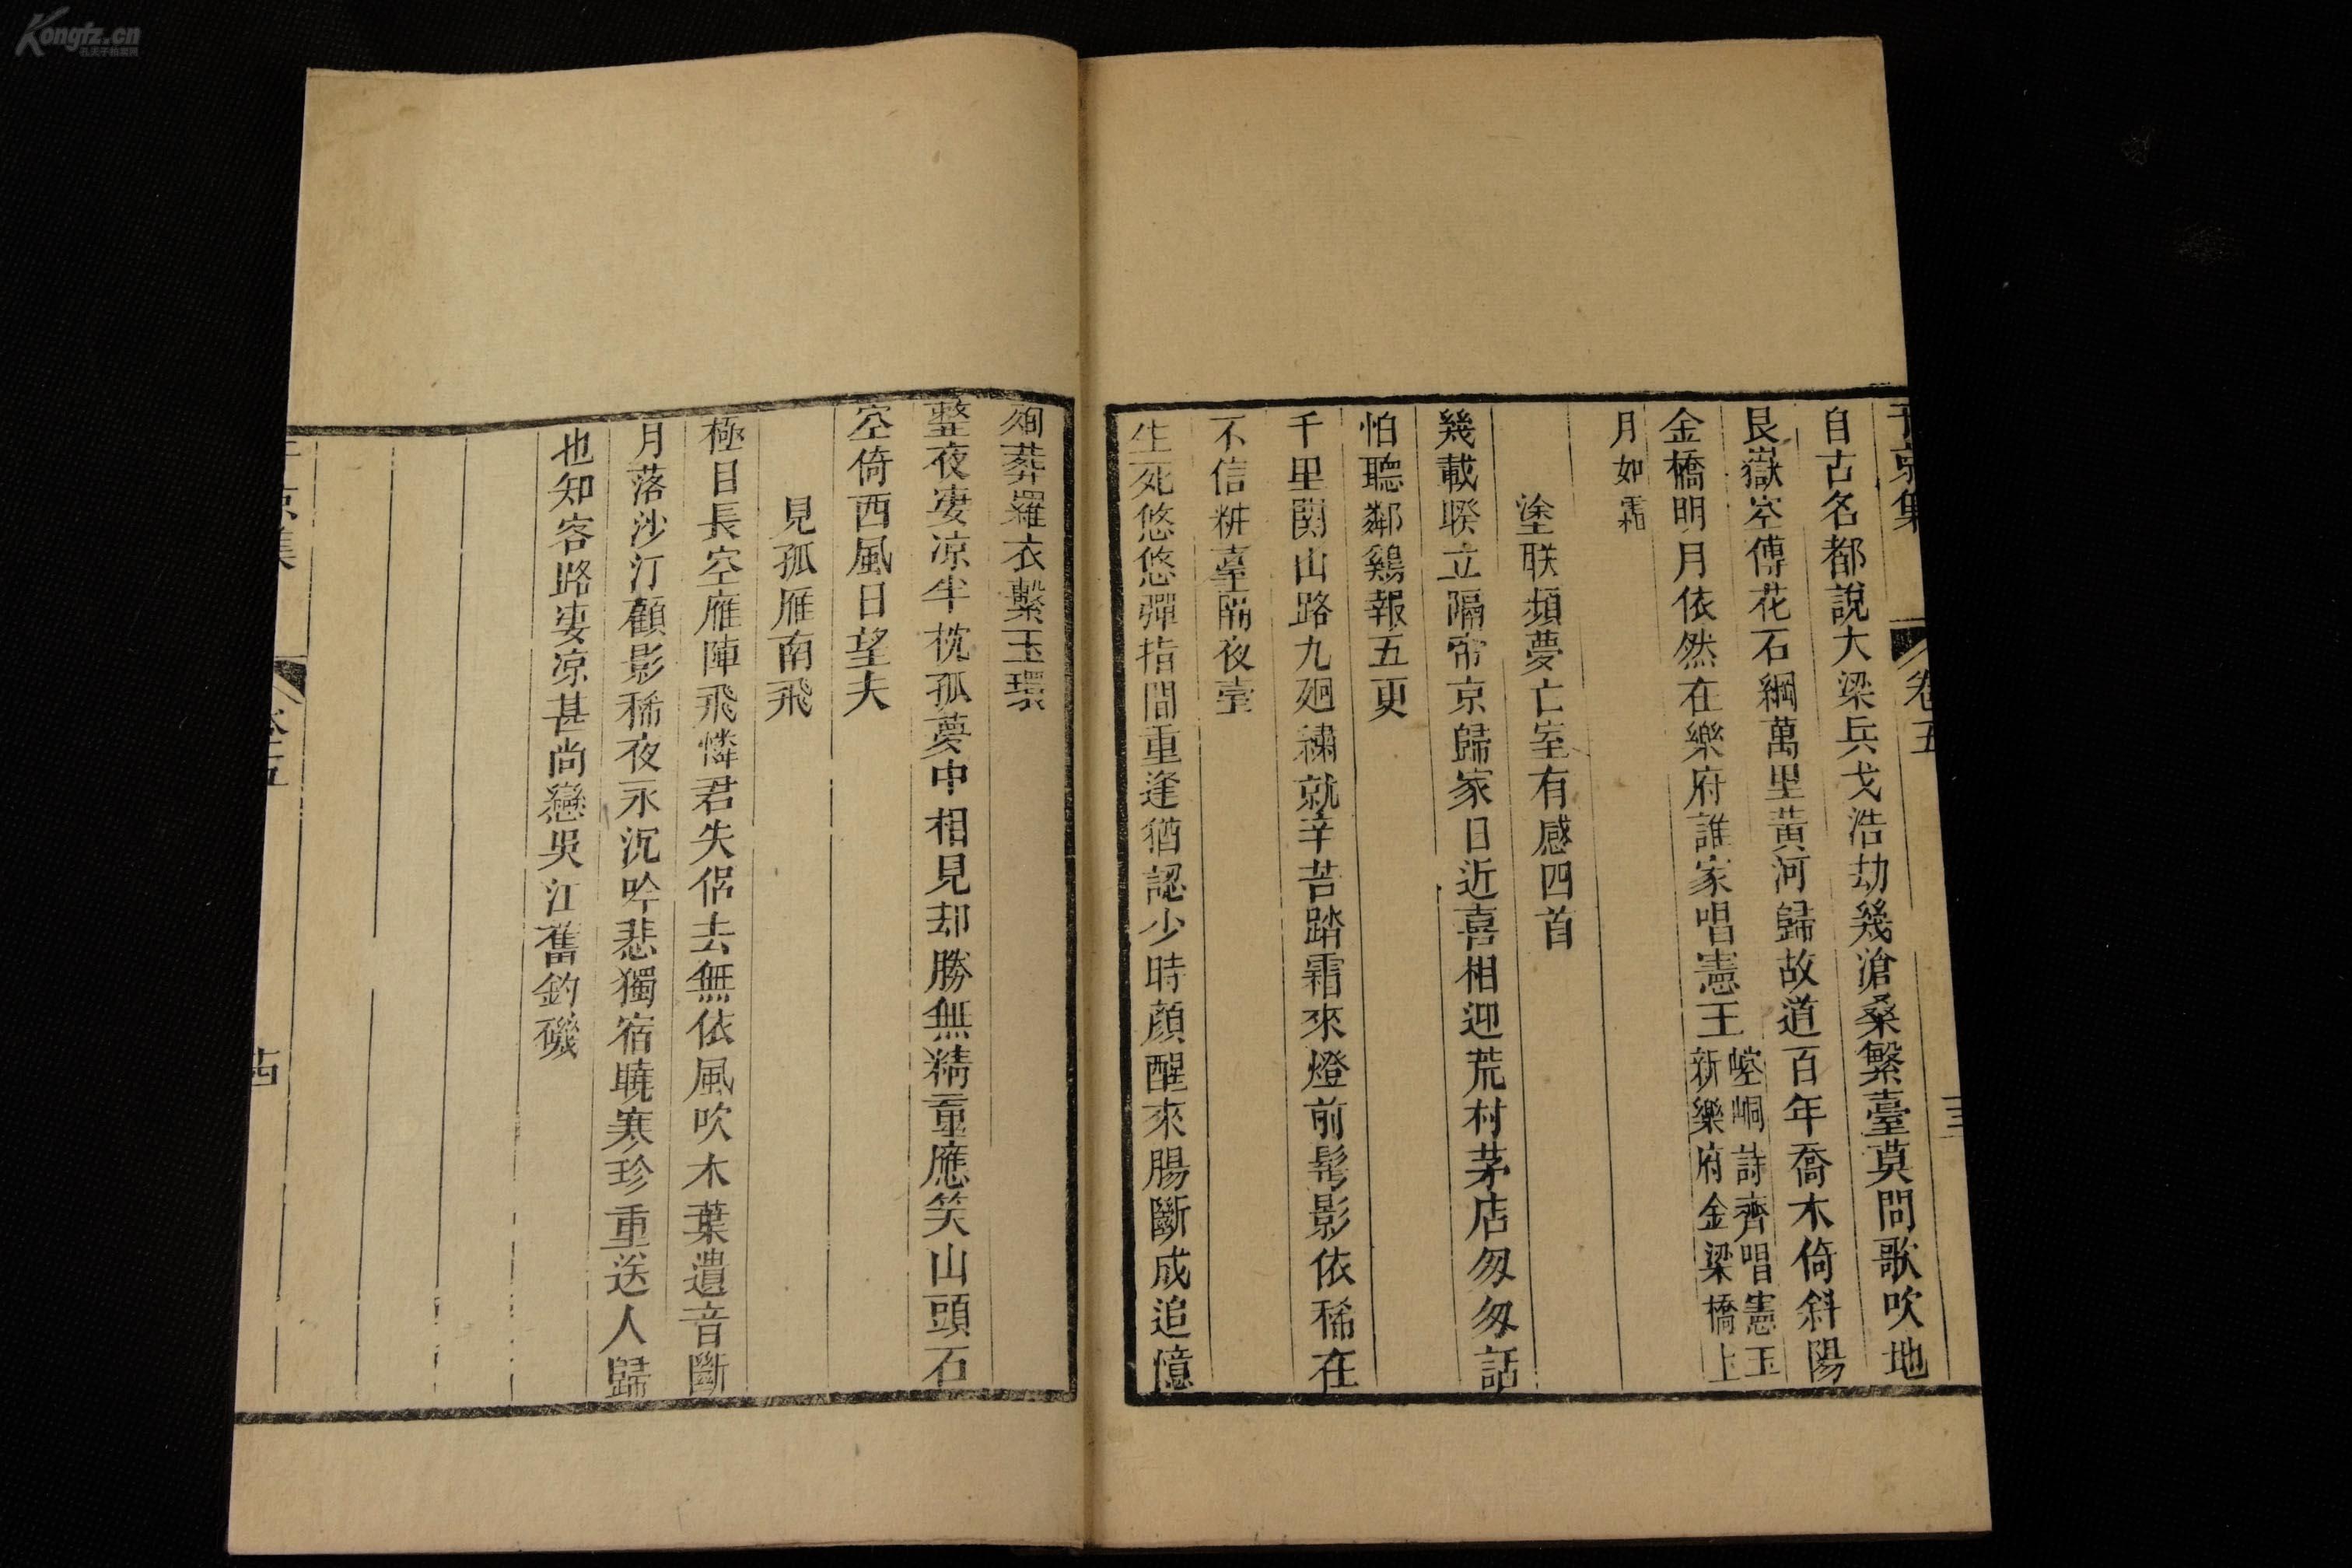 自古名都說大梁兵戈浩劫幾滄桑繁臺莫問歌吹地
艮嶽空傳花石綱萬里黃河歸故道百年喬木倚斜陽
金橋明月依然在樂府誰家唱憲王崆峒詩齊唱憲王新樂府金梁橋上
月如霜
塗聅頻夢亡室有感四首
幾載睽立隔帝京歸家日近喜相迎荒村茅店匆匆話
怕聽鄰鷄報五更
千里關山路九廻繡就辛苦踏霜來燈前髩影依稀在
不信粧臺隔夜臺
生死悠悠彈指間重逢猶認少時顏醒來腸斷成追憶
殉葬羅衣繫玉環
整夜淒凉半枕孤夢中相見却勝無精靈應笑山頭石
空倚西風日望夫
見孤雁南飛
極目長空雁陣飛憐君失侶去無依風吹木葉遺音斷
月落沙汀顧影稀夜永沉吟悲獨宿曉寒珍重送人歸
也知客路淒凉甚尚戀吳江舊釣磯
卷五
Kongfz.cn